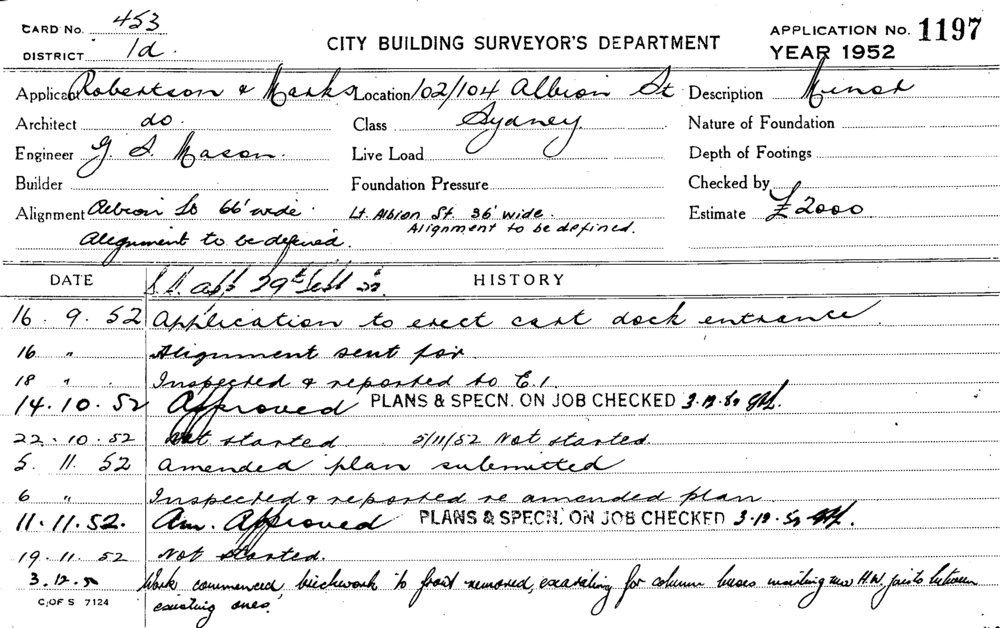 CARD No. 453
DISTRICT 1d.
CITY BUILDING SURVEYOR'S DEPARTMENT
APPLICATION No. 1197
YEAR 1952
Applicant Robertson & Marks Location 102/104 Albion St Description Minor
Architect do. Class Sydney Nature of Foundation
Engineer G. S. Mason. Live Load Depth of Footings
Builder Foundation Pressure Checked by
Alignment Albion St 66' wide. Lt. Albion St. 36' wide. Estimate £2000
Alignment to be defined. Alignment to be defined.
DATE HISTORY
29th Sept
16. 9. 52 Application to erect cart dock entrance
16 " Alignment sent for.
18 " Inspected & reported to E.1.
14. 10. 52 Approved PLANS & SPECN. ON JOB CHECKED
22. 10. 52 Not started 5/11/52 Not started.
5. 11. 52 amended plan submitted
6 " Inspected & reported re amended plan
11. 11. 52. Am. Approved PLANS & SPECN. ON JOB CHECKED
19. 11. 52 Not started.
3. 12. Work commenced, brickwork to front removed, excavating for column bases between
existing ones.
C. OF S 7124